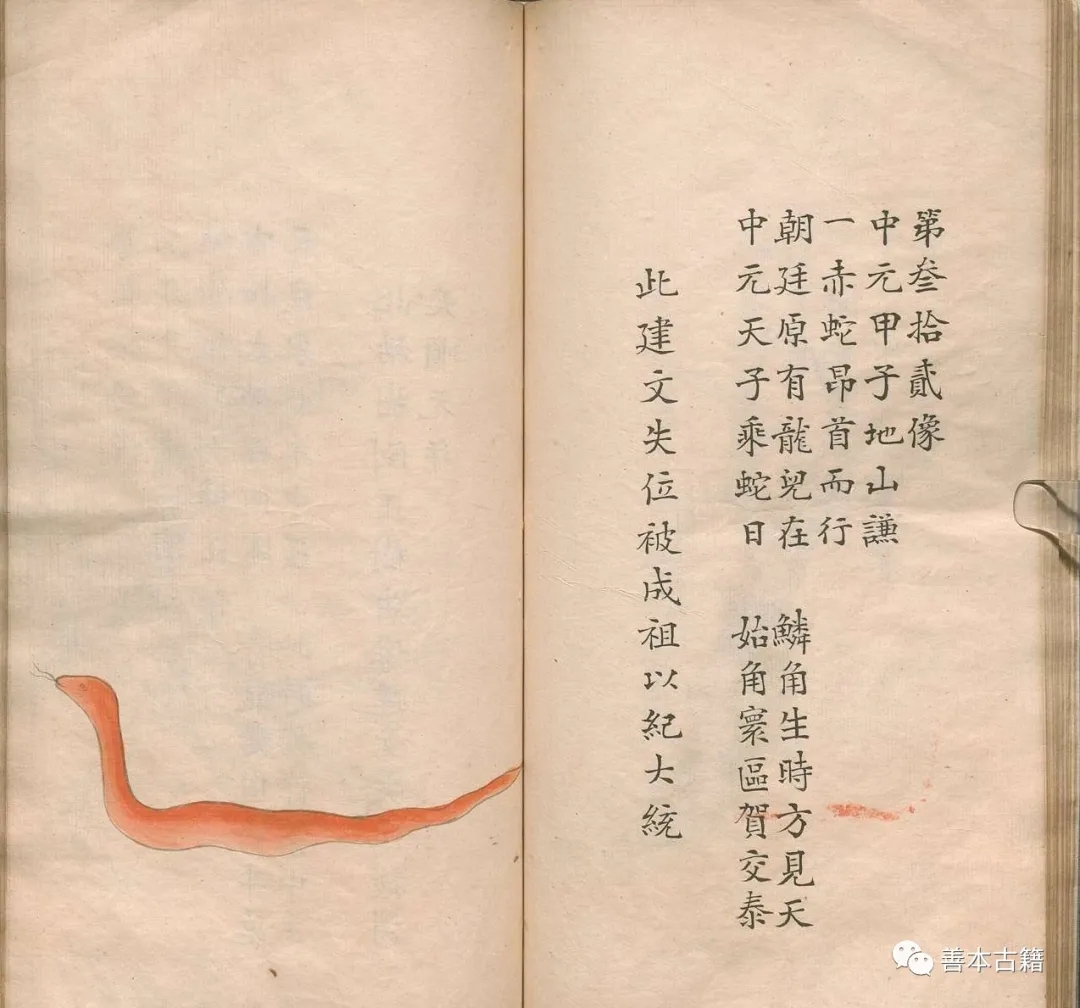 第叁拾貳像
中元甲子地山謙
一赤蛇昂首而行
朝廷原有龍兒在 鱗角生時方見天
中元天子乘蛇日 始角寰區賀交泰
此建文失位被成祖以紀大統
善本古籍